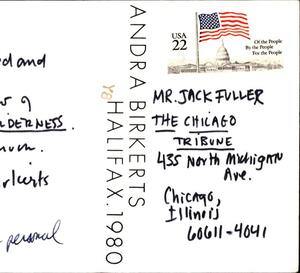 and
of
IDERNESS.
much.
rkerts
personal
ANDRA BIRKERTS
HALIFAX. 1980
USA
22
Of the People
By the People
For the People
MR. JACK FULLER
THE CHICAGO
TRIBUNE
435 North Michigan
Ave.
Chicago,
Illinois
60611-4041